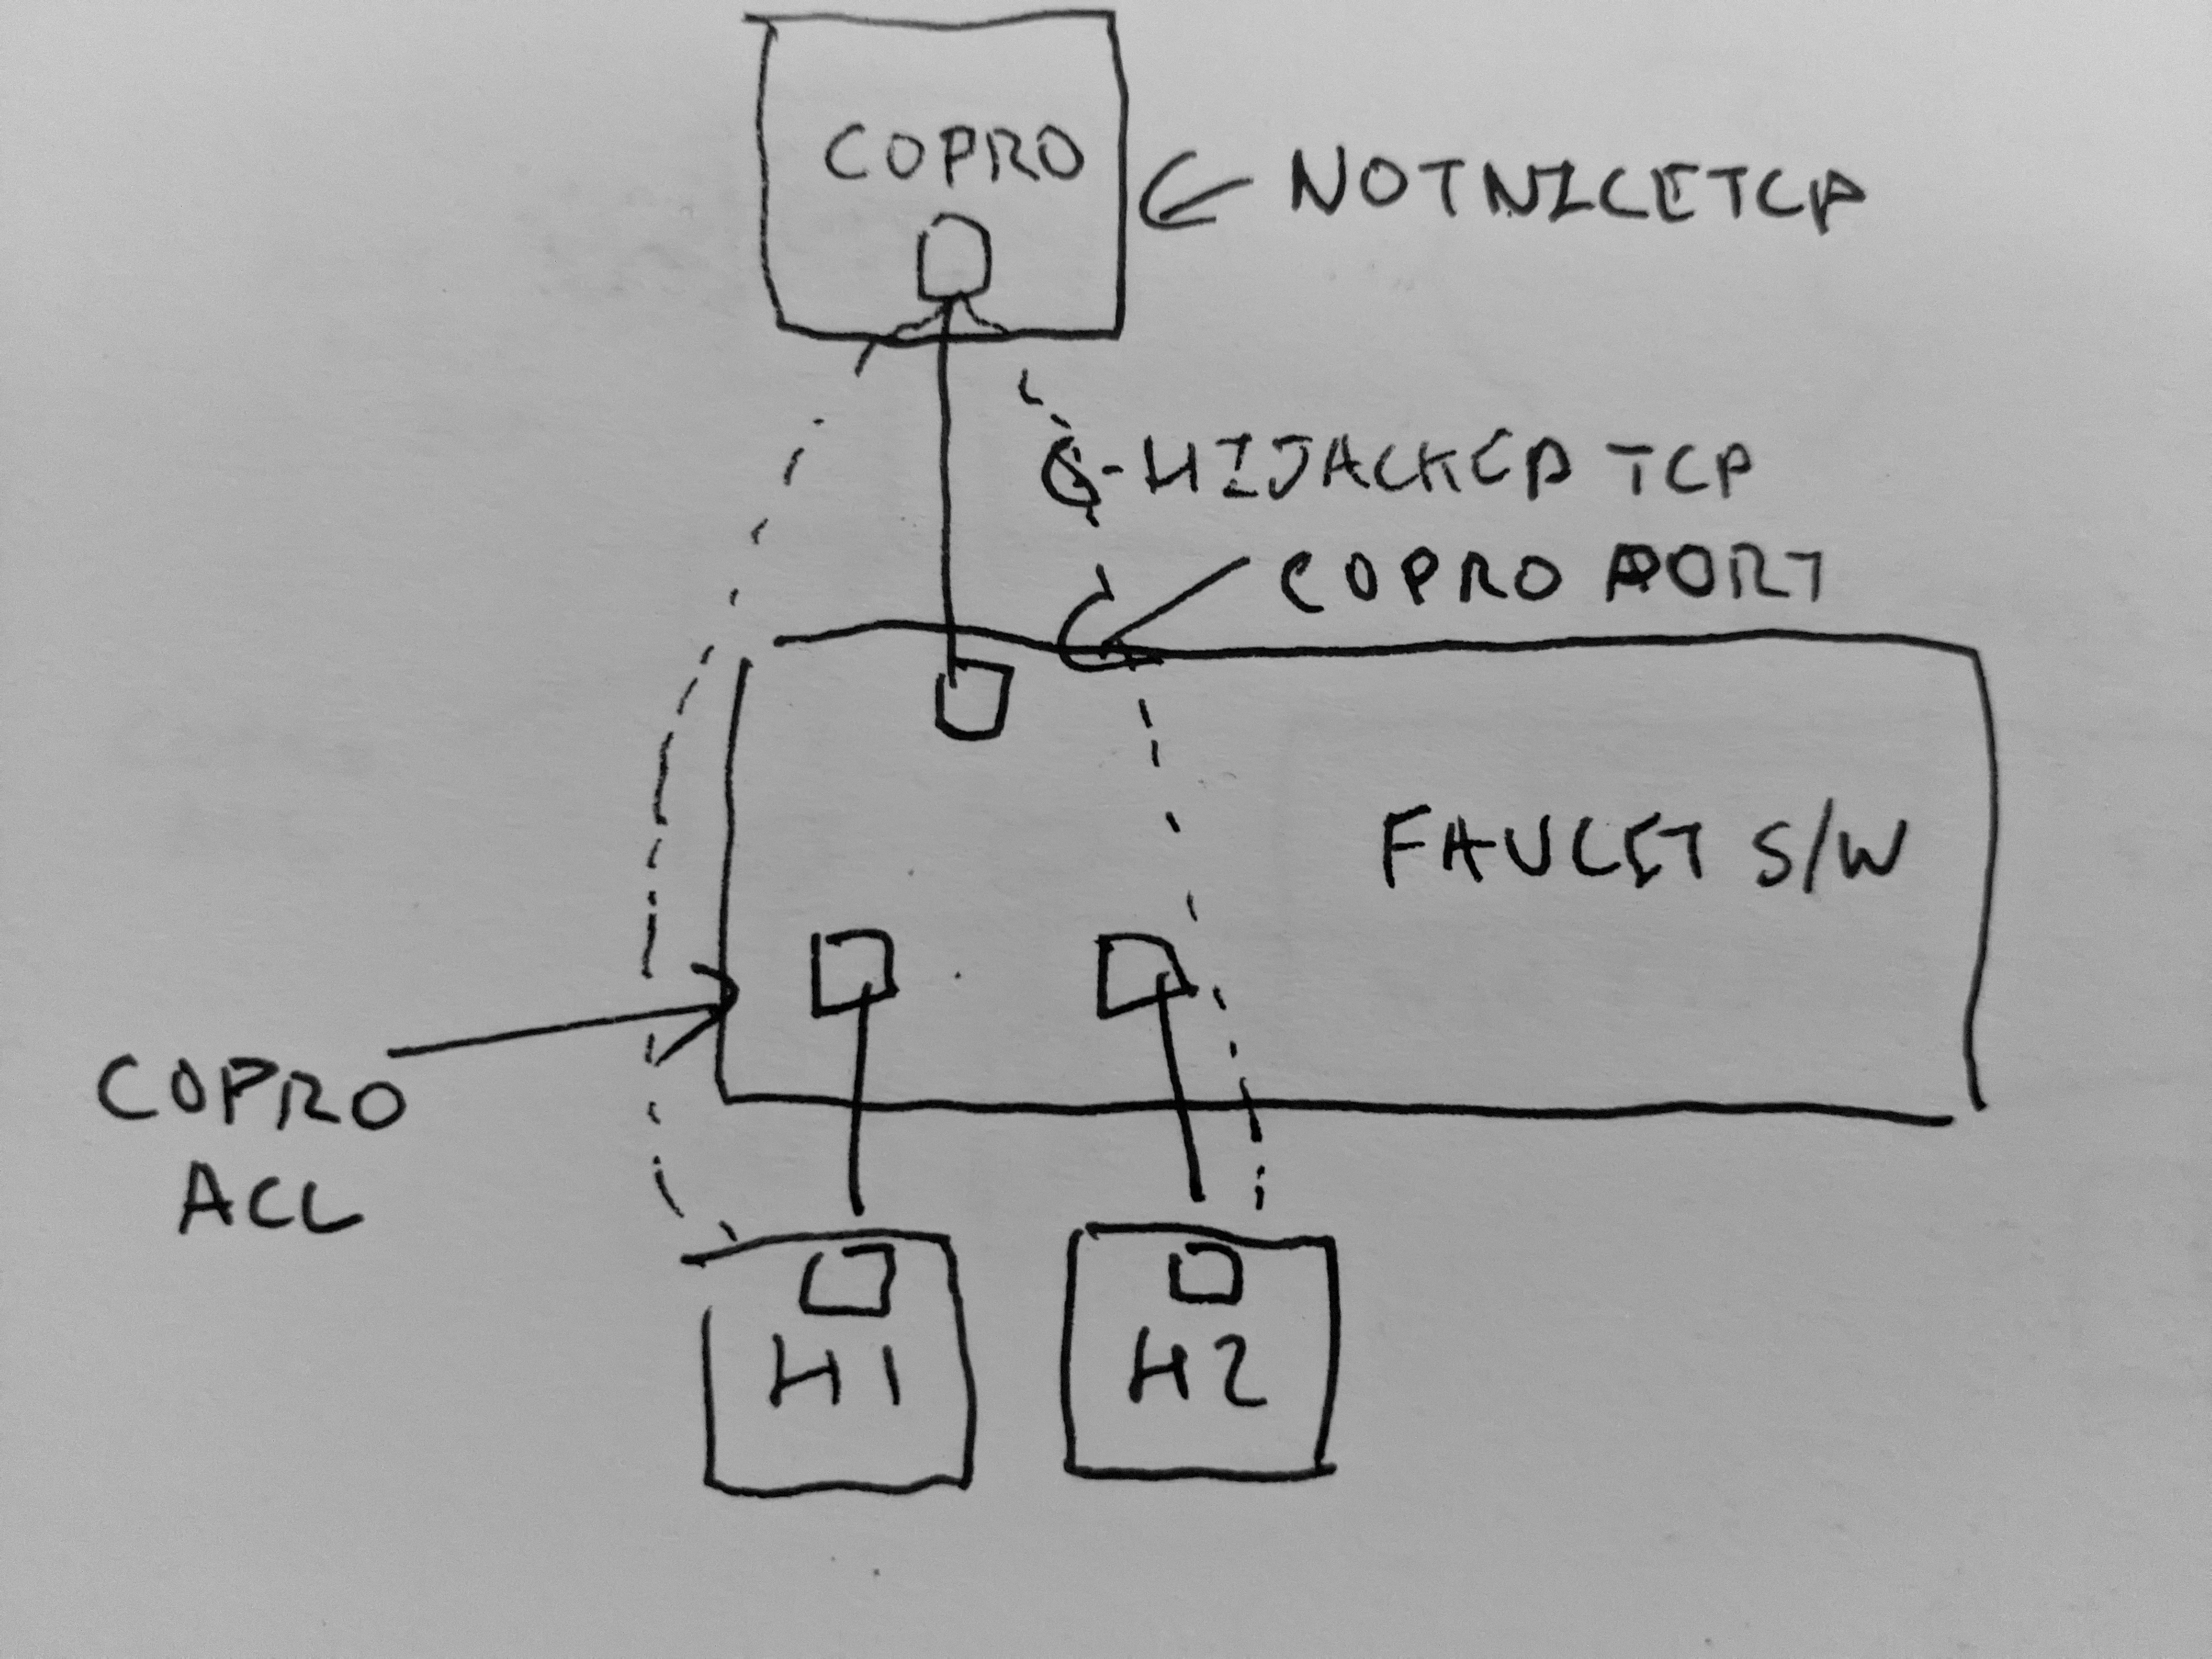 COPRO
NOTNICETCP
HIJACKED TCP
COPRO PORT
FAUCET S/W
COPRO
ACL
H1
H2